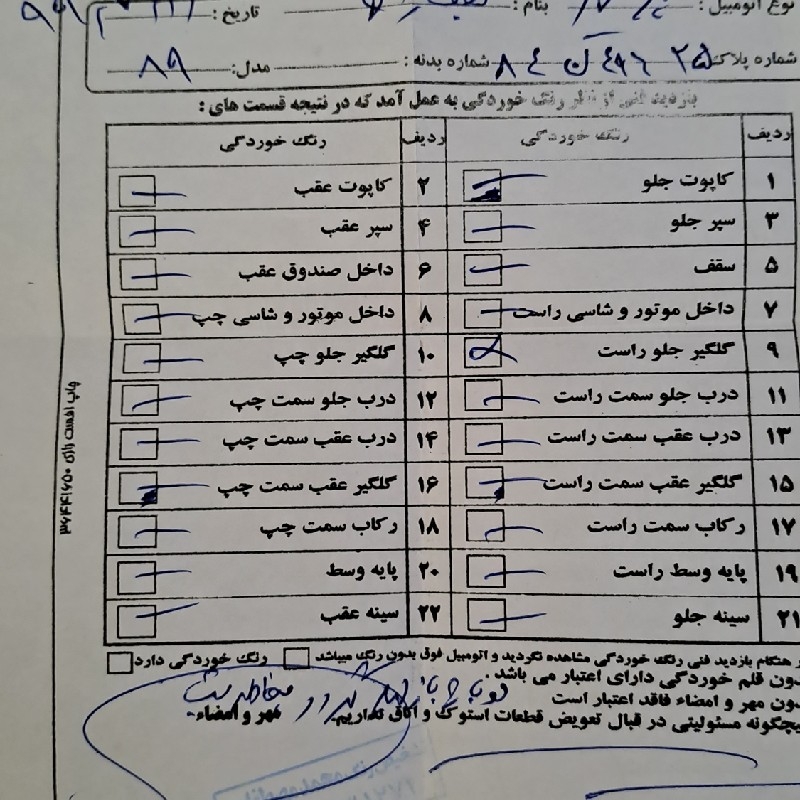 نوع اتومبیل : بنام : تاریخ :
شماره پلاک: ۲۵ ۴۹۶ ل ۸۴ شماره بدنه : مدل: ۸۹
بازدید فنی از نظر رنگ خوردگی به عمل آمد که در نتیجه قسمت های :
ردیف رنگ خوردگی ردیف رنگ خوردگی
۱ کاپوت جلو ۲ کاپوت عقب
۳ سپر جلو ۴ سپر عقب
۵ سقف ۶ داخل صندوق عقب
۷ داخل موتور و شاسی راست ۸ داخل موتور و شاسی چپ
۹ گلگیر جلو راست ۱۰ گلگیر جلو چپ
۱۱ درب جلو سمت راست ۱۲ درب جلو سمت چپ
۱۳ درب عقب سمت راست ۱۴ درب عقب سمت چپ
۱۵ گلگیر عقب سمت راست ۱۶ گلگیر عقب سمت چپ
۱۷ رکاب سمت راست ۱۸ رکاب سمت چپ
۱۹ پایه وسط راست ۲۰ پایه وسط
۲۱ سینه جلو ۲۲ سینه عقب
هنگام بازدید فنی رنگ خوردگی مشاهده نگردید و اتومبیل فوق بدون رنگ میباشد رنگ خوردگی دارد
دون قلم خوردگی دارای اعتبار می باشد .
دون مهر و امضاء فاقد اعتبار است
یچگونه مسئولیتی در قبال تعویض قطعات استوک و اتاق نداریم. مهر و امضاء
چاپ افست رازی ۳۶۴۴۱۶۵۰